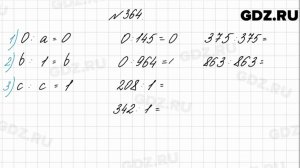 GDZ.RU
№ 364
1) 0 : a = 0
2) b : 1 = b
3) c : c = 1
0 : 145 = 0
0 : 964 =
208 : 1 =
342 : 1 =
375 : 375 =
863 : 863 =
GDZ.RU